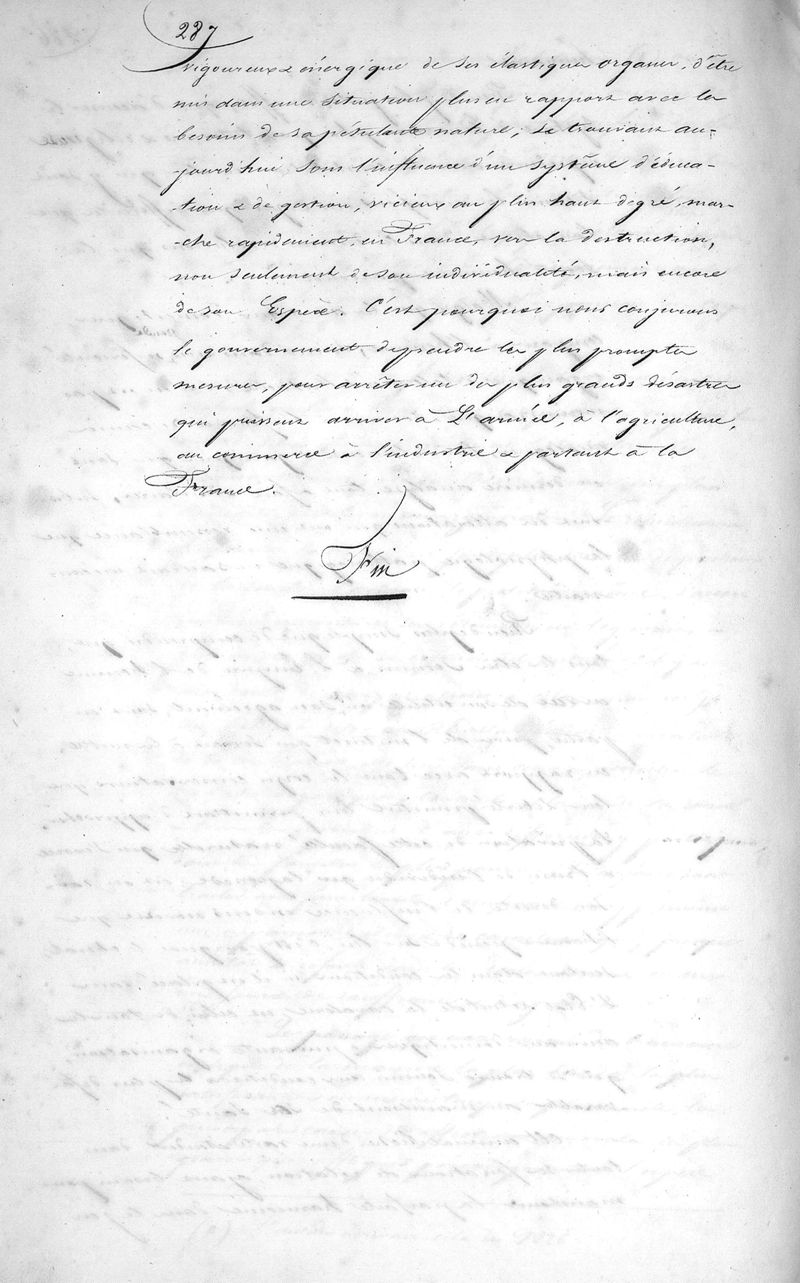 237
vigoureux & énergique de ses élastiques organes, d'être
mis dans une situation plus en rapport avec les
besoins de sa pétulante nature; se trouvant au-
-jourd'hui sous l'influence d'un système d'éduca-
-tion & de gestion, vicieux au plus haut degré, mar-
-che rapidement, en France, vers la destruction,
non seulement de son individualité, mais encore
de son Espèce. C'est pourquoi nous conjurons
le gouvernement, de prendre les plus promptes
mesures, pour arrêter un des plus grands désastres
qui puissent arriver à L'armée, à l'agriculture,
au commerce à l'industrie & partant à la
France.
Fin